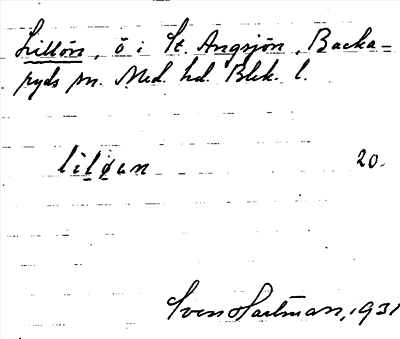 Lillön, ö i St. Angsjön, Backa=
ryds sn. Med. hd. Blek. l.
liløan 20.
Sven Hartman, 1931